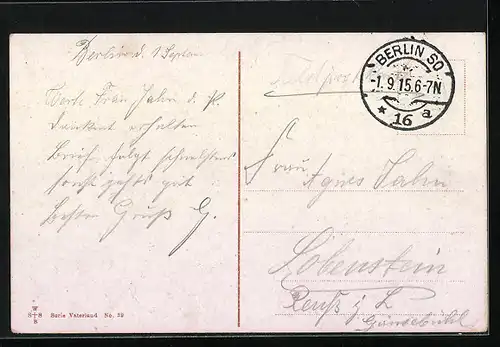 Berlin d. 1 Septem
Werte Frau Jahn d. K.
dankend erhalten
Brief folgt schnellstens
sonst gehts gut
Besten Gruß G.
W
S+S
B
Serie Vaterland No. 39
Feldpost
BERLIN SO
1.9.15.6-7N
* 16 a
Frau
Agnes Jahn
Lobenstein
Reuß j. L.
Gänsebühl